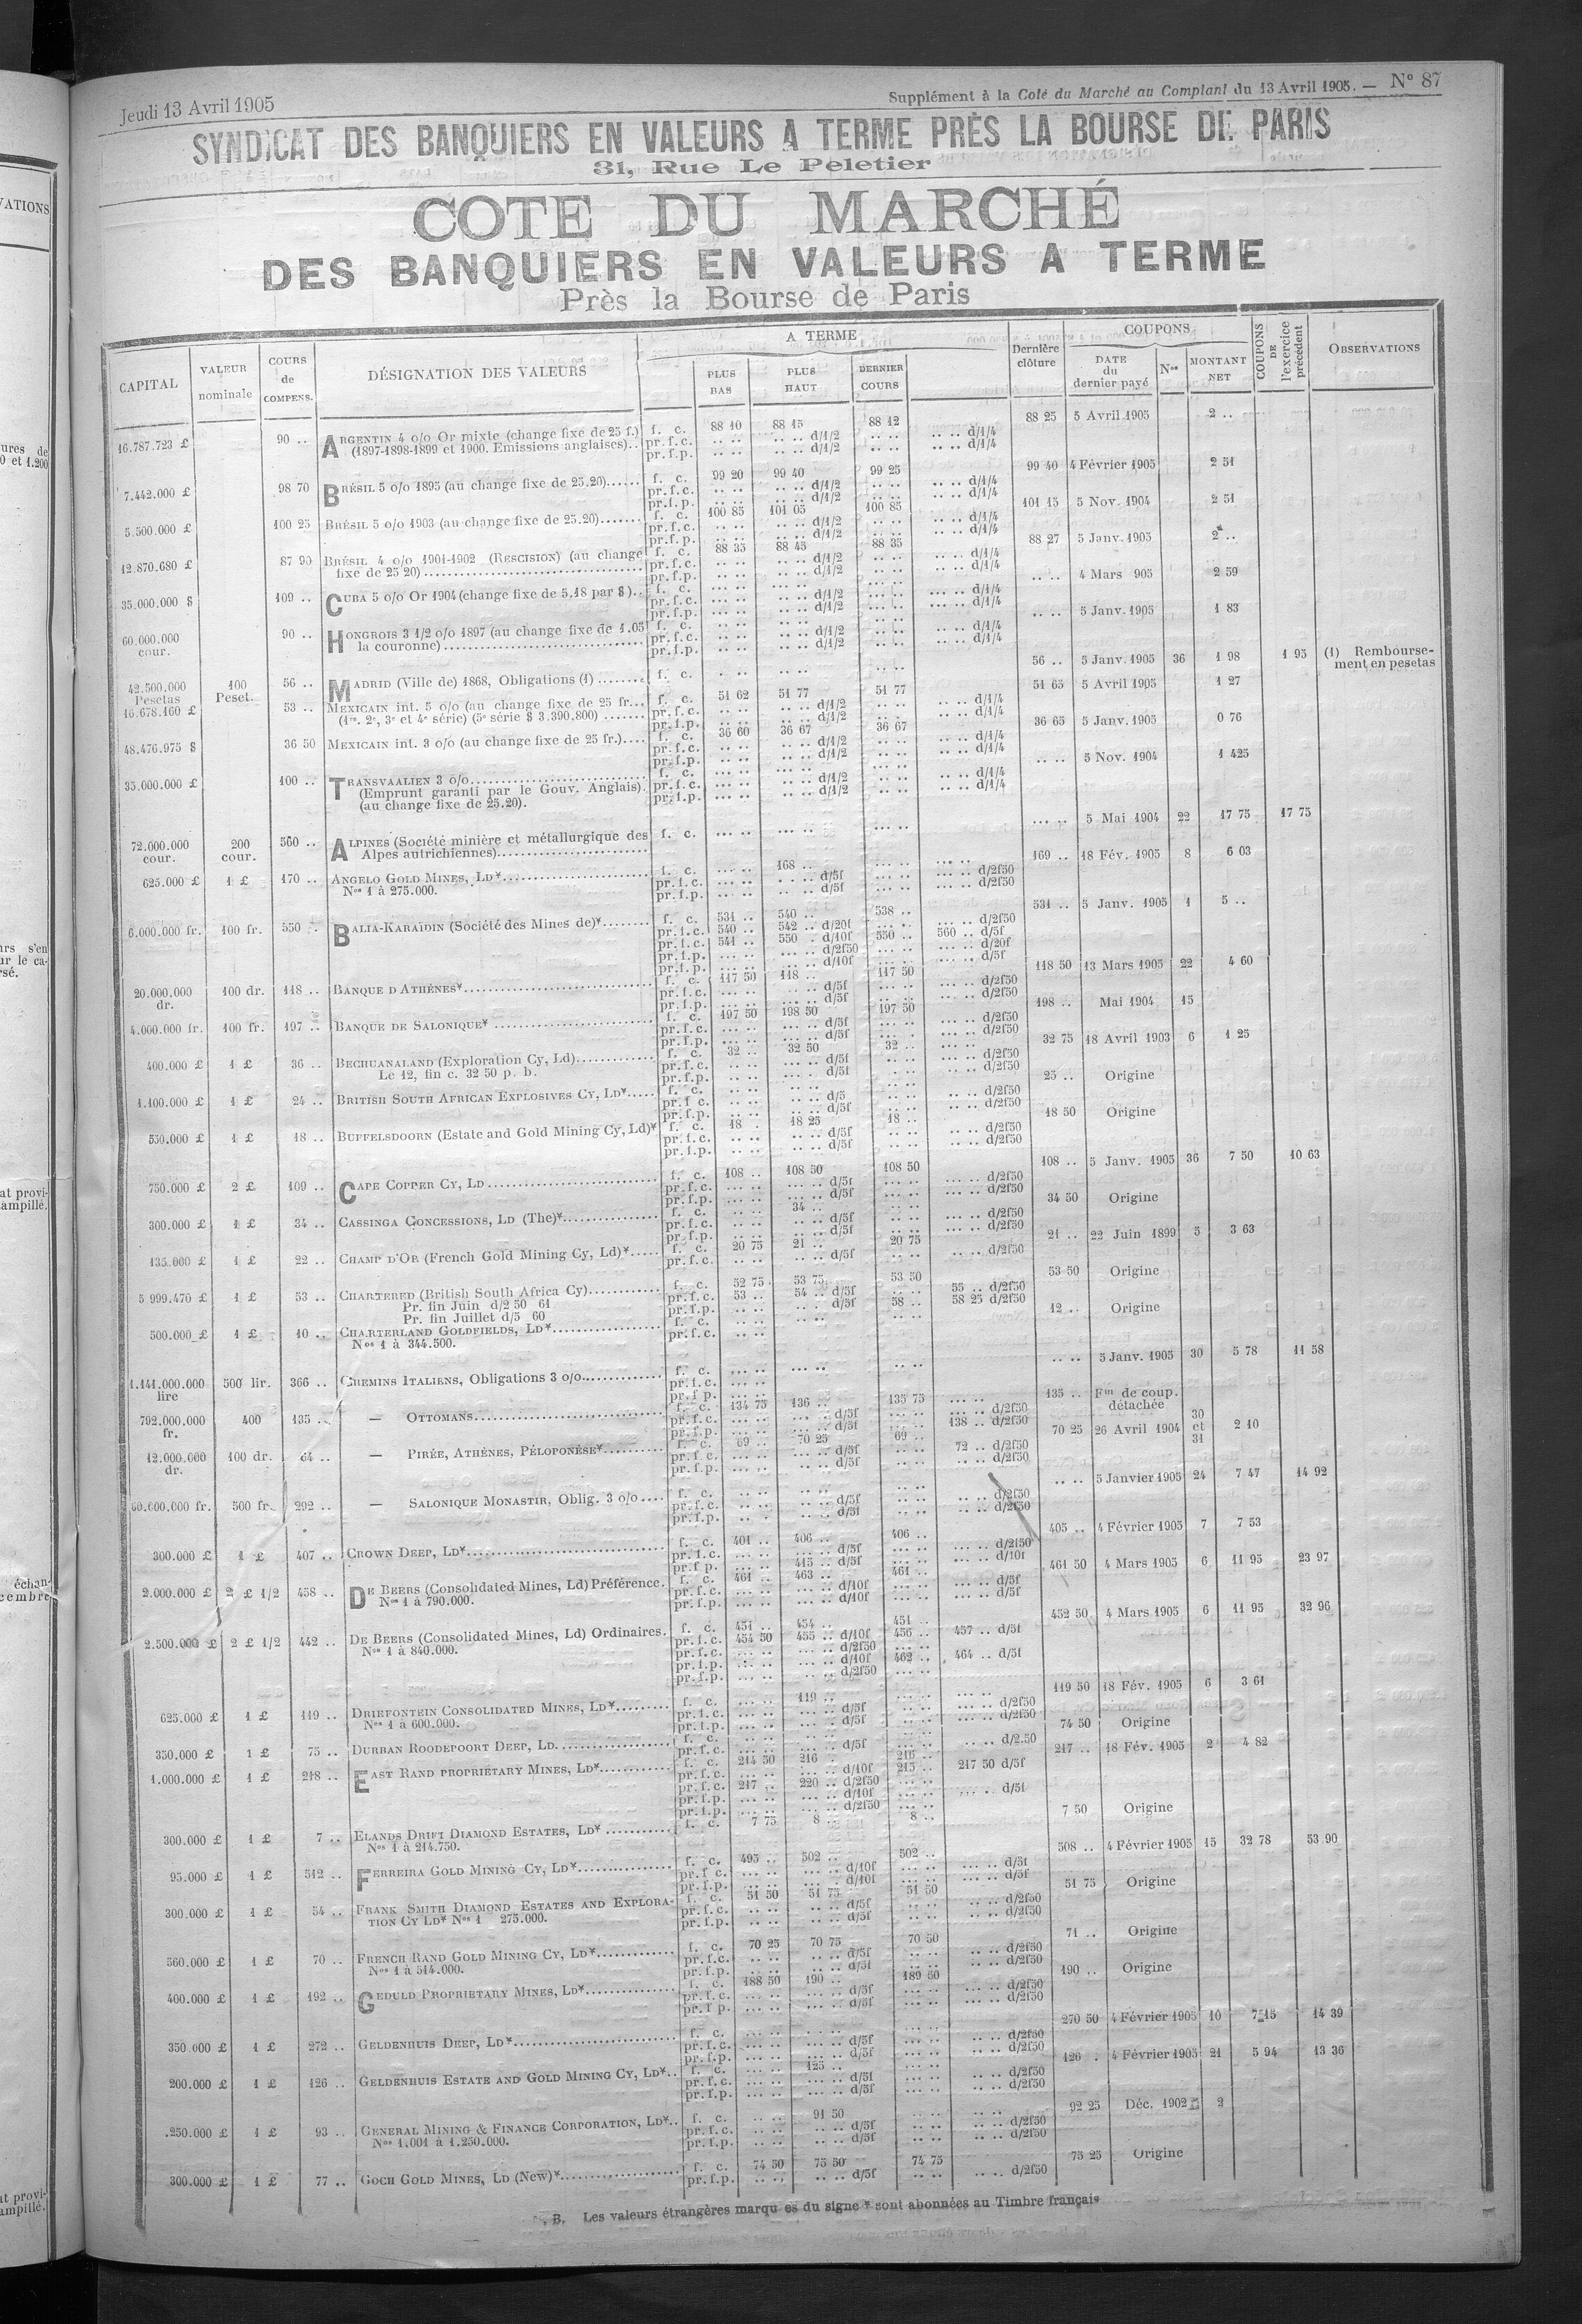 Jeudi 13 Avril 1905
Supplément à la Cote du Marché au Comptant du 13 Avril 1905. — N° 87
SYNDICAT DES BANQUIERS EN VALEURS A TERME PRÈS LA BOURSE DE PARIS
31, Rue Le Peletier
COTE DU MARCHÉ
DES BANQUIERS EN VALEURS A TERME
Près la Bourse de Paris
CAPITAL VALEUR nominale COURS de COMPENS. DÉSIGNATION DES VALEURS A TERME PLUS BAS PLUS HAUT DERNIER COURS Dernière clôture COUPONS DATE du dernier payé Nos MONTANT NET COUPONS DE l'exercice précédent OBSERVATIONS
16.787.723 £ 90 .. ARGENTIN 4 o/o Or mixte (change fixe de 25 f.) f. c. 88 10 88 15 88 12 88 25 5 Avril 1905 2 ..
(1897-1898-1899 et 1900. Emissions anglaises).. pr.f.c. .. .. .. .. d/1/2 .. .. .. .. d/1/4
pr.f.p. .. .. .. .. d/1/2 .. .. .. .. d/1/4
7.442.000 £ 98 70 BRÉSIL 5 o/o 1895 (au change fixe de 25.20)...... f. c. 99 20 99 40 99 25 99 40 4 Février 1905 2 51
pr.f.c. .. .. .. .. d/1/2 .. .. .. .. d/1/4
pr.f.p. .. .. .. .. d/1/2 .. .. .. .. d/1/4
5.500.000 £ 100 25 BRÉSIL 5 o/o 1903 (au change fixe de 25.20)....... f. c. 100 85 101 05 100 85 101 15 5 Nov. 1904 2 51
pr.f.c. .. .. .. .. d/1/2 .. .. .. .. d/1/4
pr.f.p. .. .. .. .. d/1/2 .. .. .. .. d/1/4
12.870.680 £ 87 90 BRÉSIL 4 o/o 1901-1902 (RESCISION) (au change f. c. 88 35 88 45 88 35 88 27 5 Janv. 1905 2 ..
fixe de 25 20)................ pr.f.c. .. .. .. .. d/1/2 .. .. .. .. d/1/4
pr.f.p. .. .. .. .. d/1/2 .. .. .. .. d/1/4
35.000.000 $ 109 .. CUBA 5 o/o Or 1904 (change fixe de 5.18 par $).. f. c. .. .. 4 Mars 905 2 59
pr.f.c. ... .. .. .. d/1/2 ... .. ... .. d/1/4
pr.f.p. ... .. .. .. d/1/2 ... .. ... .. d/1/4
60.000.000 cour. 90 .. HONGROIS 3 1/2 o/o 1897 (au change fixe de 1.05 f. c. .. .. 5 Janv. 1905 1 83
la couronne)................ pr.f.c. .. .. .. .. d/1/2 .. .. .. .. d/1/4
pr.f.p. .. .. .. .. d/1/2 .. .. .. .. d/1/4
42.500.000 Pesetas 100 Peset. 56 .. MADRID (Ville de) 1868, Obligations (1) ........ f. c. 56 .. 5 Janv. 1905 36 1 98 1 95 (1) Remboursement en pesetas
16.678.160 £ 53 .. MEXICAIN int. 5 o/o (au change fixe de 25 fr... f. c. 51 62 51 77 51 77 51 65 5 Avril 1905 1 27
(1re, 2e, 3e et 4e série) (5e série $ 3.390.800) ....... pr.f.c. .. .. .. .. d/1/2 .. .. .. .. d/1/4
pr.f.p. .. .. .. .. d/1/2 .. .. .. .. d/1/4
48.476.975 $ 36 50 MEXICAIN int. 3 o/o (au change fixe de 25 fr.).... f. c. 36 60 36 67 36 67 36 65 5 Janv. 1905 0 76
pr.f.c. .. .. .. .. d/1/2 .. .. .. .. d/1/4
pr.f.p. .. .. .. .. d/1/2 .. .. .. .. d/1/4
35.000.000 £ 100 .. TRANSVAALIEN 3 o/o................ f. c. .. .. 5 Nov. 1904 1 425
(Emprunt garanti par le Gouv. Anglais). pr.f.c. ... .. .. .. d/1/2 .. .. .. .. d/1/4
(au change fixe de 25.20). pr.f.p. ... .. .. .. d/1/2 .. .. .. .. d/1/4
72.000.000 cour. 200 cour. 560 .. ALPINES (Société minière et métallurgique des f. c. ... .. 5 Mai 1904 22 17 75 17 75
Alpes autrichiennes)................
625.000 £ 1 £ 170 .. ANGELO GOLD MINES, LD*................ f. c. 168 .. 169 .. 18 Fév. 1905 8 6 03
Nos 1 à 275.000. pr.f.c. ... .. .. .. d/5f ... .. ... .. d/2f50
pr.f.p. ... .. .. .. d/5f ... .. ... .. d/2f50
6.000.000 fr. 100 fr. 550 .. BALIA-KARAÏDIN (Société des Mines de)*........ f. c. 531 .. 540 .. 538 .. 531 .. 5 Janv. 1905 1 5 ..
pr.f.c. 540 .. 542 .. d/20f ... .. ... .. d/2f50
pr.f.c. 541 .. 550 . d/10f 550 .. 560 .. d/5f
pr.f.p. ... .. ... .. d/2f50 ... .. ... .. d/20f
pr.f.p. ... .. ... .. d/10f ... .. ... .. d/5f
20.000.000 dr. 100 dr. 118 .. BANQUE D'ATHÈNES*................ f. c. 117 50 118 .. 117 50 118 50 13 Mars 1905 22 4 60
pr.f.c. ... .. ... .. d/5f ... .. ... .. d/2f50
pr.f.p. ... .. ... .. d/5f ... .. ... .. d/2f50
4.000.000 fr. 100 fr. 197 .. BANQUE DE SALONIQUE* ................ f. c. 197 50 198 50 197 50 198 .. Mai 1904 15
pr.f.c. ... .. ... .. d/5f ... .. ... .. d/2f50
pr.f.p. ... .. ... .. d/5f ... .. ... .. d/2f50
400.000 £ 1 £ 36 .. BECHUANALAND (Exploration Cy, Ld)............ f. c. 32 .. 32 50 32 .. 32 75 18 Avril 1903 6 1 25
Le 12, fin c. 32 50 p. b. pr.f.c. .. .. .. .. d/5f .. .. .. .. d/2f50
pr.f.p. .. .. .. .. d/5f .. .. .. .. d/2f50
1.100.000 £ 1 £ 24 .. BRITISH SOUTH AFRICAN EXPLOSIVES CY, LD*..... f. c. 25 .. Origine
pr.f c. .. .. .. .. d/5 .. .. .. .. d/2f50
pr.f.p. .. .. .. .. d/5f .. .. .. .. d/2f50
550.000 £ 1 £ 18 .. BUFFELSDOORN (Estate and Gold Mining Cy, Ld)* f. c. 18 . 18 25 18 .. 18 50 Origine
pr.f.c. .. .. .. .. d/5f .. .. .. .. d/2f50
pr.f.p. .. .. .. .. d/5f .. .. .. .. d/2f50
750.000 £ 2 £ 109 .. CAPE COPPER CY, LD................ f. c. 108 .. 108 50 108 50 108 .. 5 Janv. 1905 36 7 50 10 63
pr.f.c. ... .. ... .. d/5f ... .. ... .. d/2f50
pr.f.p. ... .. ... .. d/5f ... .. ... .. d/2f50
300.000 £ 1 £ 34 .. CASSINGA CONCESSIONS, LD (The)*................ f. c. 34 .. 34 50 Origine
pr.f.c. .. .. .. .. d/5f .. .. .. .. d/2f50
pr.f.p. .. .. .. .. d/5f .. .. .. .. d/2f50
135.000 £ 1 £ 22 .. CHAMP D'OR (French Gold Mining Cy, Ld)*..... f. c. 20 75 21 .. 20 75 21 .. 22 Juin 1899 5 3 63
pr.f.c. .. .. .. .. d/5f .. .. .. .. d/2f50
5 999.470 £ 1 £ 53 .. CHARTERED (British South Africa Cy)........... f. c. 52 75 53 75 53 50 53 50 Origine
Pr. fin Juin d/2 50 61 pr.f.c. 53 .. 54 .. d/5f .. .. 55 .. d/2f50
Pr. fin Juillet d/5 60 pr.f.p. .. .. .. . d/5f 58 .. 58 25 d/2f50
500.000 £ 1 £ 10 .. CHARTERLAND GOLDFIELDS, LD*................ f. c. .. .. 12 .. Origine
Nos 1 à 344.500. pr.f.c. .. ..
1.141.000.000 lire 500 lir. 366 .. CHEMINS ITALIENS, Obligations 3 o/o............ f. c. ... .. 5 Janv. 1905 30 5 78 11 58
pr.f.c. ... ..
pr.f p. ... ..
792.000.000 fr. 400 135 .. — OTTOMANS................ f. c. 134 75 136 .. 135 75 135 .. Fin de coup. détachée
pr.f.c. ... .. ... .. d/5f ... .. ... .. d/2f50
pr.f.p. ... .. ... .. d/5f ... .. 138 .. d/2f50
12.000.000 dr. 100 dr. 64 .. — PIRÉE, ATHÈNES, PÉLOPONÈSE*........... f. c. 69 .. 70 25 69 .. 70 25 26 Avril 1904 30 et 31 2 10
pr.f.c. ... .. ... .. d/5f .. .. 72 .. d/2f50
pr.f.p. ... .. .. .. d/5f .. .. .. .. d/2f50
60.000.000 fr. 500 fr. 292 .. — SALONIQUE MONASTIR, Oblig. 3 o/o.... f. c. .. .. 5 Janvier 1905 24 7 47 14 92
pr.f.c. .. .. .. .. d/5f .. .. .. .. d/2f50
pr.f.p. .. . .. .. d/5f .. .. .. .. d/2f50
300.000 £ 1 £ 407 .. CROWN DEEP, LD*................ f. c. 401 .. 406 .. 406 .. 405 .. 4 Février 1905 7 7 53
pr.f.c. ... .. ... .. d/5f ... .. ... .. d/2f50
pr.f p. ... .. 415 .. d/5f ... .. ... .. d/10f
2.000.000 £ 2 £ 1/2 458 .. DE BEERS (Consolidated Mines, Ld) Préférence. f. c. 461 .. 463 .. 461 .. 461 50 4 Mars 1905 6 11 95 23 97
Nos 1 à 790.000. pr.f.c. ... .. ... .. d/10f ... .. ... .. d/5f
pr.f.p. ... .. ... .. d/10f ... .. ... .. d/5f
2.500.000 £ 2 £ 1/2 442 .. DE BEERS (Consolidated Mines, Ld) Ordinaires. f. c. 451 .. 454 .. 451 .. 452 50 4 Mars 1905 6 11 95 32 96
Nos 1 à 840.000. pr.f.c. 454 50 455 .. d/10f 456 .. 457 .. d/5f
pr.f.c. ... .. ... .. d/2f50 ... ..
pr.f.p. ... .. ... .. d/10f 462 .. 464 .. d/5f
pr.f.p. ... .. ... .. d/2f50 ... ..
625.000 £ 1 £ 119 .. DRIEFONTEIN CONSOLIDATED MINES, LD*......... f. c. 119 .. 119 50 18 Fév. 1905 6 3 61
Nos 1 à 600.000. pr.f.c. ... .. ... .. d/5f ... .. ... .. d/2f50
pr.f.p. ... .. ... .. d/5f ... .. ... .. d/2f50
350.000 £ 1 £ 75 .. DURBAN ROODEPOORT DEEP, LD............... f. c. 74 50 Origine
pr.f.c. .. .. .. .. d/5f .. .. .. .. d/2.50
1.000.000 £ 1 £ 218 .. EAST RAND PROPRIETARY MINES, LD*........... f. c. 214 50 216 .. 216 .. 217 .. 18 Fév. 1905 2 4 82
pr.f.c. ... .. ... .. d/10f 215 .. 217 50 d/5f
pr.f.c. 217 .. 220 .. d/2f50 ... ..
pr.f.p. ... .. ... .. d/10f ... .. ... .. d/5f
pr.f.p. ... .. ... .. d/2f50 ... ..
300.000 £ 1 £ 7 .. ELANDS DRIFT DIAMOND ESTATES, LD* ........... f. c. 7 75 8 .. 8 .. 7 50 Origine
Nos 1 à 214.750.
95.000 £ 1 £ 512 .. FERREIRA GOLD MINING CY, LD*................ f. c. 495 .. 502 .. 502 .. 508 .. 4 Février 1905 15 32 78 53 90
pr.f c. ... .. ... .. d/10f ... .. ... .. d/5f
pr.f.p. ... .. ... .. d/10f ... .. ... .. d/5f
300.000 £ 1 £ 54 .. FRANK SMITH DIAMOND ESTATES AND EXPLORA- f. c. 51 50 51 75 51 50 51 75 Origine
TION CY LD* Nos 1 275.000. pr.f.c. .. .. .. .. d/5f .. .. .. .. d/2f50
pr.f.p. .. .. .. .. d/5f .. .. .. .. d/2f50
560.000 £ 1 £ 70 .. FRENCH RAND GOLD MINING CY, LD*............ f. c. 70 25 70 75 70 50 71 .. Origine
Nos 1 à 514.000. pr.f.c. .. .. .. .. d/5f .. .. .. .. d/2f50
pr.f.p. .. .. .. .. d/5f .. .. .. .. d/2f50
400.000 £ 1 £ 192 .. GEDULD PROPRIETARY MINES, LD*............... f. c. 188 50 190 .. 189 50 190 .. Origine
pr.f.c. ... .. ... .. d/5f ... .. ... .. d/2f50
pr.f p. ... .. ... .. d/5f ... .. ... .. d/2f50
350.000 £ 1 £ 272 .. GELDENHUIS DEEP, LD*................ f. c. 270 50 4 Février 1905 10 7 15 14 39
pr.f.c. ... .. ... .. d/5f ... .. .. .. d/2f50
pr.f.p. ... .. ... .. d/5f ... .. .. .. d/2f50
200.000 £ 1 £ 126 .. GELDENHUIS ESTATE AND GOLD MINING CY, LD*.. f. c. 125 .. 126 . 4 Février 1905 21 5 94 13 36
pr.f.c. ... .. ... .. d/5f ... .. ... .. d/2f50
pr.f.p. ... .. ... .. d/5f ... .. ... .. d/2f50
.250.000 £ 1 £ 93 .. GENERAL MINING & FINANCE CORPORATION, LD*.. f. c. .. .. 91 50 92 25 Déc. 1902 2
Nos 1.001 à 1.250.000. pr.f.c. .. .. .. .. d/5f .. .. .. .. d/2f50
pr.f.p. .. .. .. .. d/5f .. .. .. .. d/2f50
300.000 £ 1 £ 77 .. GOCH GOLD MINES, LD (New)*................ f. c. 74 50 75 50 74 75 75 25 Origine
pr.f.p. .. .. .. .. d/5f .. .. .. .. d/2f50
. B. Les valeurs étrangères marqu es du signe * sont abonnées au Timbre français